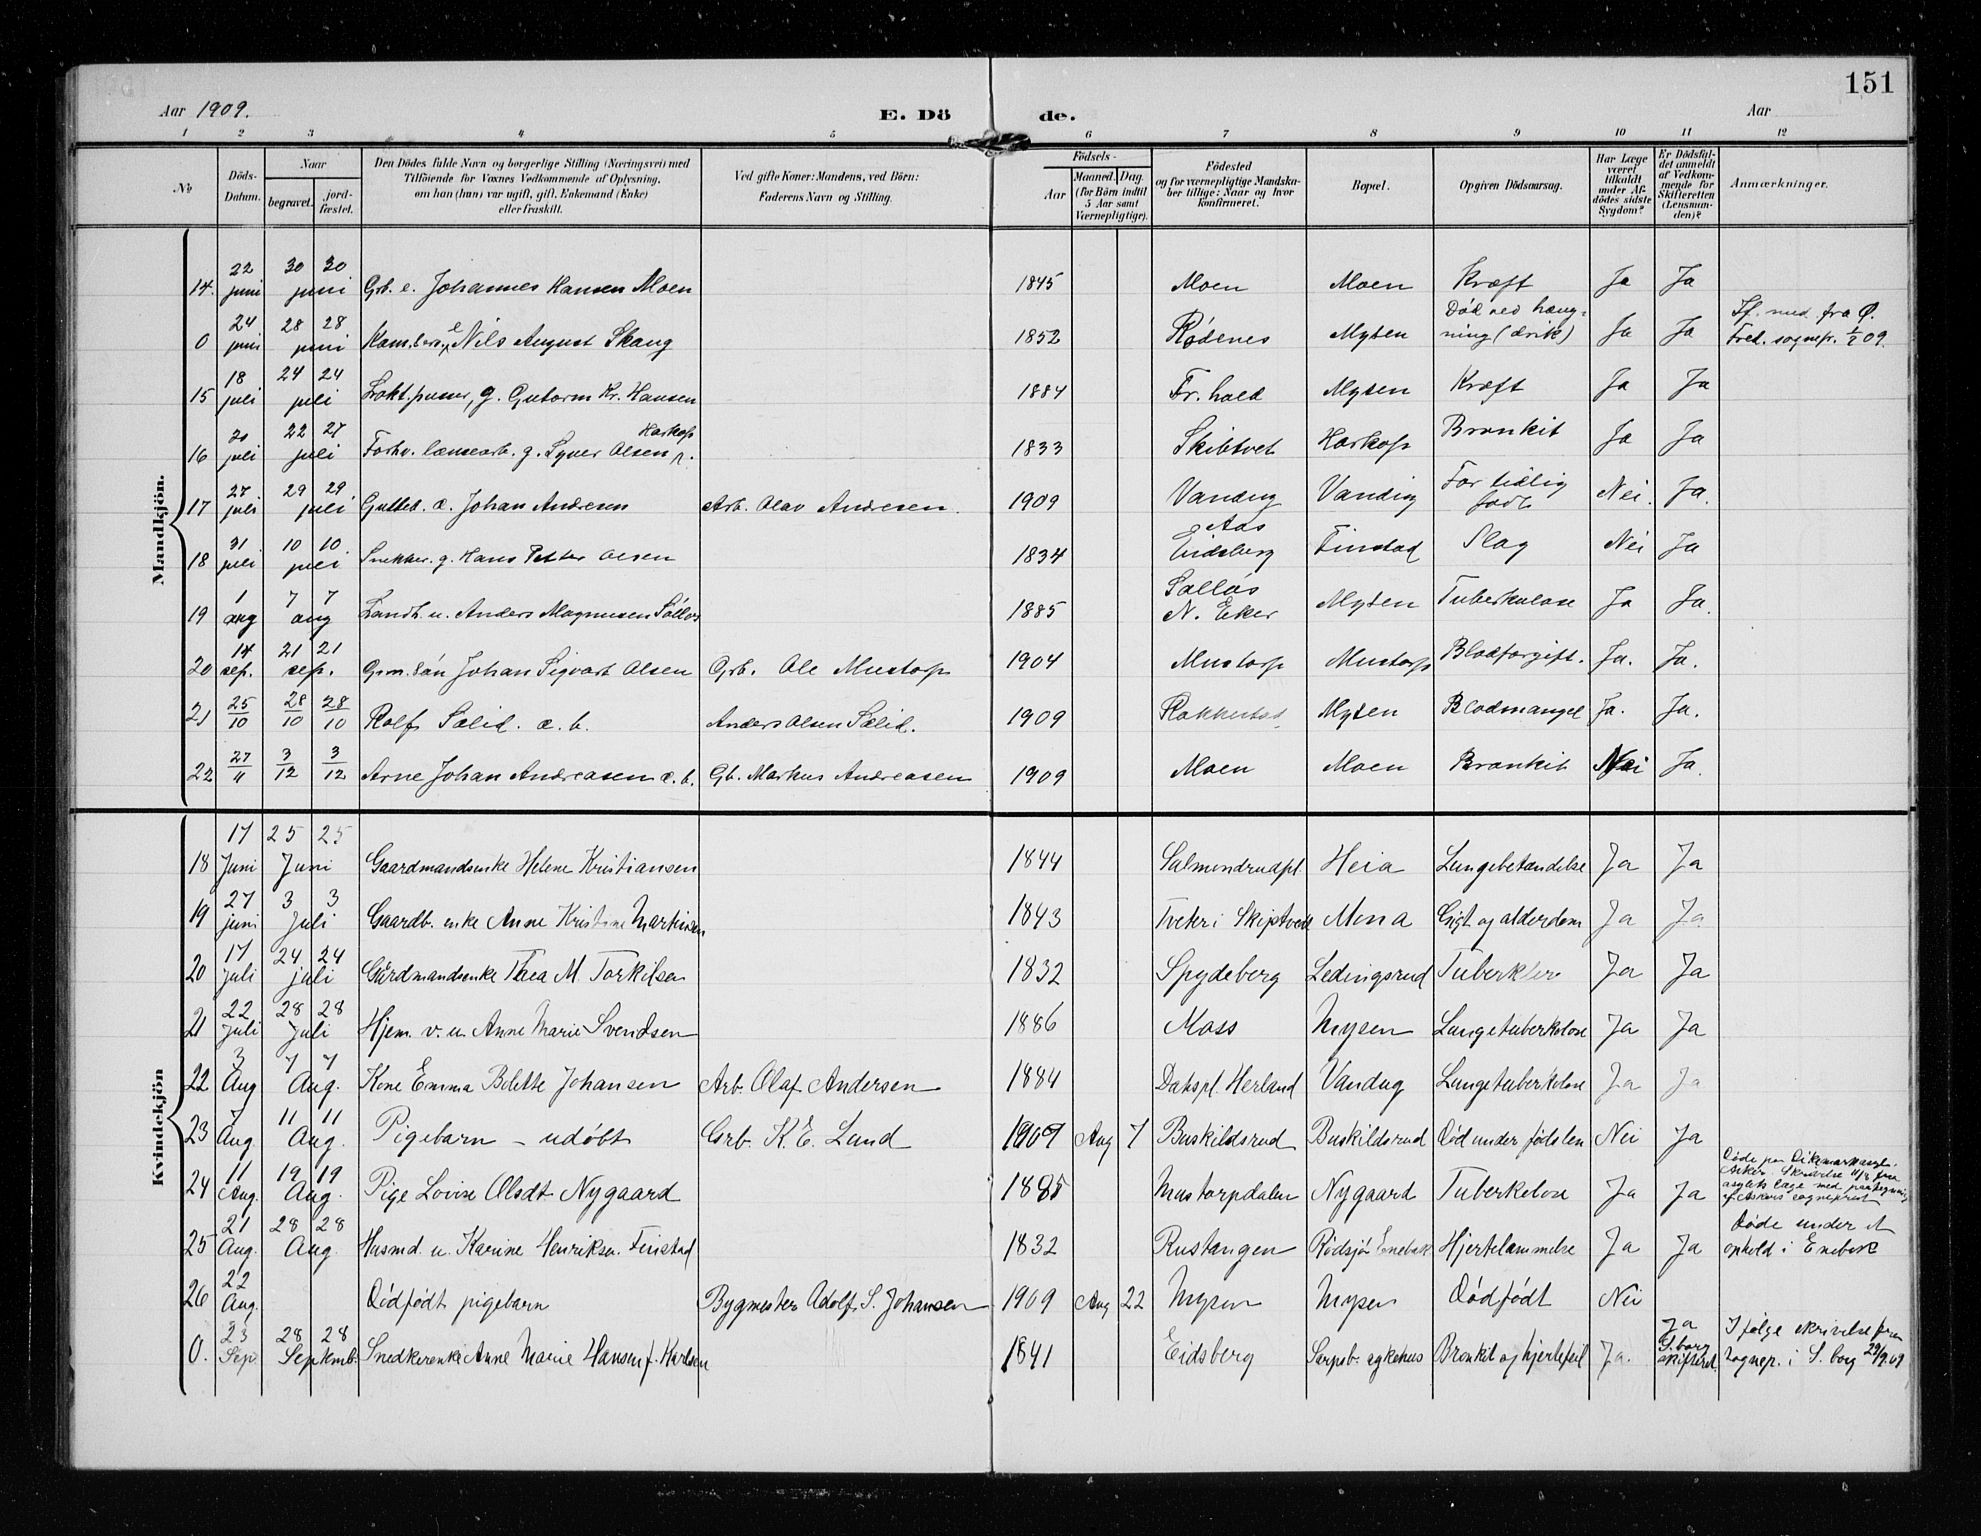 151
Aar 1909. E. Dö de. Aar
1 2 3 4 5 6 7 8 9 10 11 12
No
Döds-Datum.
Naar
begravet.
jord-fæstet.
Den Dödes fulde Navn og borgerlige Stilling (Næringsvei) med
Tilföiende for Voxnes Vedkommende af Oplysning,
om han (hun) var ugift, gift, Enkemand (Enke)
eller fraskilt.
Ved gifte Koner: Mandens, ved Börn:
Faderens Navn og Stilling.
Födsels-
Aar
Maaned. Dag.
(for Börn indtil
5 Aar samt
Værnepligtige).
Födested
og for værnepligtige Mandska-
ber tillige: Naar og hvor
konfirmeret.
Bopæl.
Opgiven Dödsaarsag.
Har Læge
været
tilkaldt
under Af-
dödes sidste
Sygdom?
Er Dödsfal-
det anmeldt
af Vedkom-
mende for
Skifteretten
(Lensman-
den)?
Anmærkninger.
Mandkjön.
14. 22 juni 30 30 juni Grb. e. Johannes Hansen Moen 1845 Moen Moen Kræft Ja Ja
0 24 juni 28 28 juni Nils August Skaug 1852 Rødenes Mysen Død ved hæng-
ning (drik) Ja Ja If. med. fra Ø.
Fred. sognepr. 1/7 09.
15 18 juli 24 24 juli Lokt.pusser, g. Gutorm Kr. Hansen 1884 Fr.hald Mysen Kræft Ja Ja
16 20 juli 22 27 juli Forhv. lænsearb. g. Syver Olsen Harkop 1833 Skibtvet Harkop Bronkit Ja Ja
17 27 juli 29 29 juli Gutteb. d. Johan Andresen Arb. Olav Andresen. 1909 Vandug Vandug For tidlig
født Nei. Ja.
18 31 juli 10 10 juli Snekker. g. Hans Petter Olsen 1834 Aas
Eidsberg Finstad Slag Nei Ja
19 1 aug 7 7 aug Landh. u. Anders Magnusen Søllos 1885 Sollos
N. Eker Mysen Tuberkulose Ja Ja.
20 14 sep. 21 21 sep. Grm. søn Johan Sigvart Olsen Grb. Ole Mustorp 1904 Mustorp Mustorp Blodforgift. Ja. Ja.
21 25/10 28/10 28/10 Rolf Sælid. d. b. Anders Olsen Sælid. 1909 Rakkestad Mysen Blodmangel Ja. Ja.
22 27/11 3/12 3/12 Arne Johan Andreasen d. b. Gb. Markus Andreasen 1909 Moen Moen Bronkit Nei Ja.
Kvindekjön
18 17 Juni 25 25 Juni Gaardmandsenke Helene Kristiansen 1844 Salmondrudpl. Heia Lungebetændelse Ja Ja
19 27 juni 3 3 Juli Gaardb. enke Anne Kristine Martinsen 1843 Tveter i Skiptvedt Mona Gigt og alderdom Ja Ja
20 17 juli 24 24 juli Gårdmandsenke Thea M. Torkilsen 1832 Spydeberg Ledingsrud Tuberklose Ja Ja
21 22 Juli 28 28 Juli Hjem. v. u. Anne Marie Svendsen 1886 Moss Mysen Lungetuberkolose Ja Ja
22 3 Aug 7 7 Aug. Kone Emma Bolette Johansen Arb. Olaf Andersen 1884 Dakspl. Herland Vandug Lungetuberkolose Ja Ja
23 7 Aug. 11 11 Aug. Pigebarn - udøbt Grb. K. E. Lund 1909 Aug 7 Buskildsrud Buskildsrud Død under fødslen Nei Ja
24 11 Aug. 19 19 Aug. Pige Lovise Olsdt. Nygaard 1885 Mustorpdalen Nygaard Tuberkelose Ja Ja Døde paa Dikemark asyl.
Asker. Skrivelse 11/8 fra
asylets læge med paategning
af Askers sogneprest
25 21 Aug. 28 28 Aug. Husmd. u. Karine Henriksen Finstad 1832 Rustangen Rødsjø Enebak Hjertelammelse Ja Ja Døde under et
ophold i Enebak
26 22 Aug. Dødfødt pigebarn Bygmester Adolf S. Johansen 1909 Aug 22 Mysen Mysen Dødfødt Nei
0. 23 Sep. 28 28 Septemb. Snedkerenke Anne Marie Hansen f. Karlsen 1841 Eidsberg Sarpsb. sykehus Bronkit og hjertefeil Ja. Ja
S.borg
skifteret. I følge skrivelse fra
Sognepr. i S.borg 29/9.09